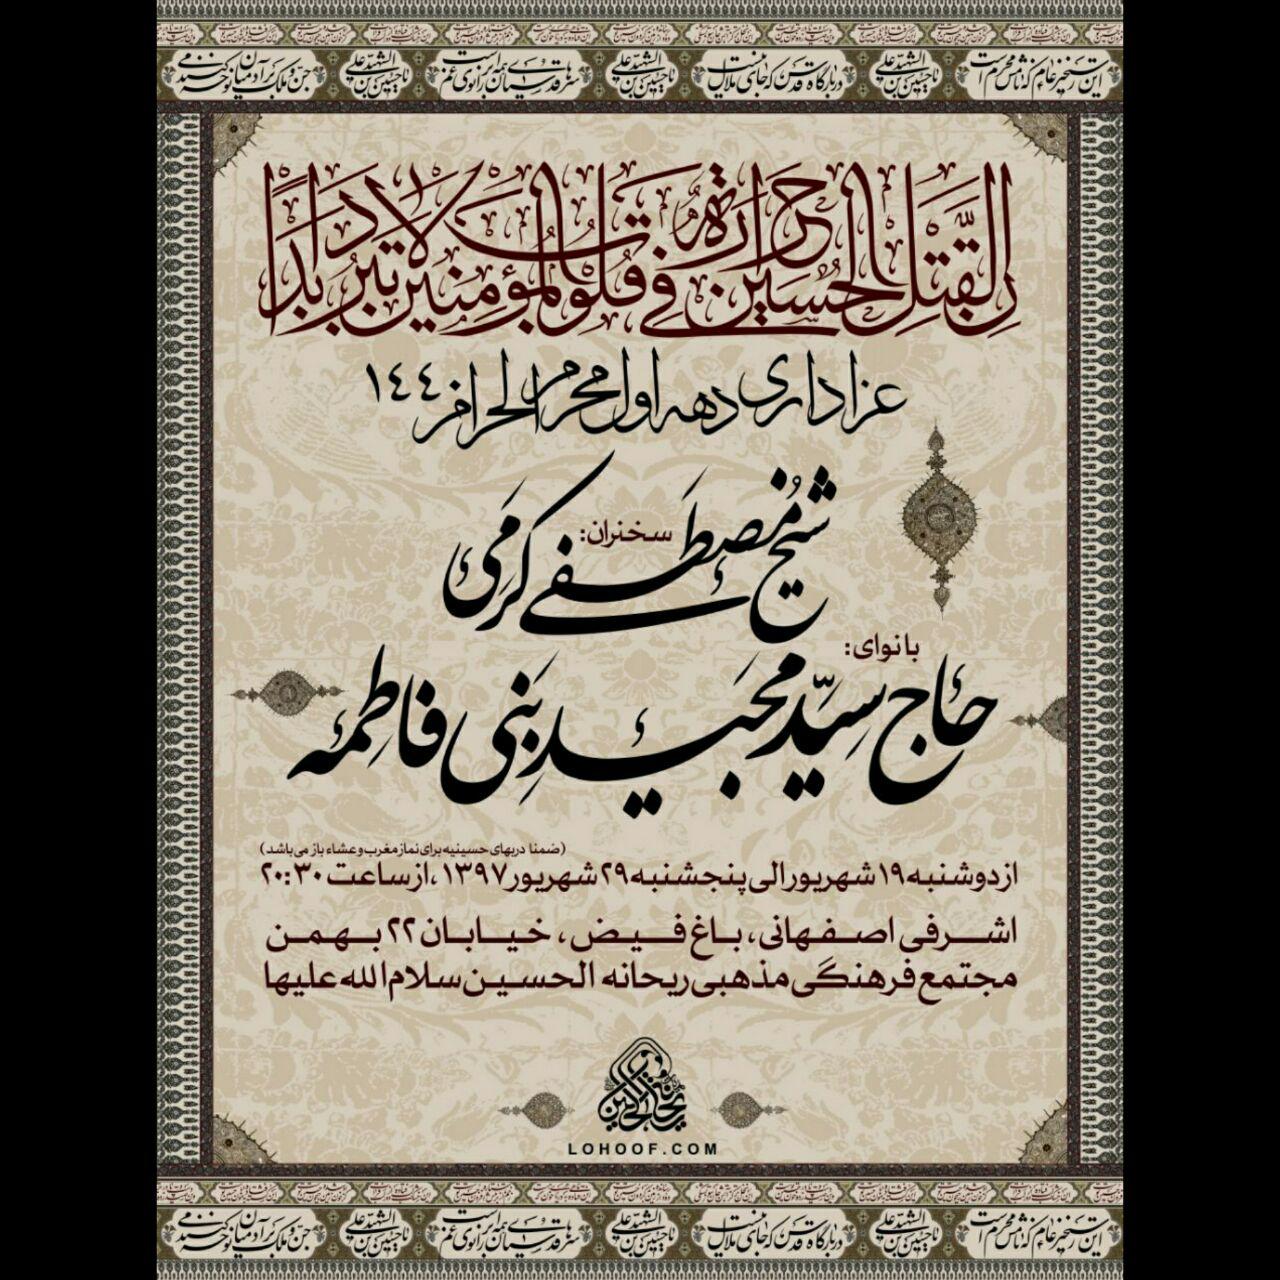 این رستخیز عام که نامش محرم است
یا حسین بن علی الشهید
در بارگاه قدس که جای ملال نیست
یا حسین بن علی الشهید
سرهای قدسیان همه بر زانوی غم است
یا حسین بن علی الشهید
جن و ملک بر آدمیان نوحه می‌کنند
ان لقتل الحسین حرارة فی قلوب المؤمنین لا تبرد ابدا
عزاداری دهه اول محرم الحرام ۱۴۴۰
سخنران:
شیخ مصطفی کرمی
با نوای:
حاج سید مجید بنی فاطمه
(ضمنا دربهای حسینیه برای نماز مغرب و عشاء باز می باشد)
از دوشنبه ۱۹ شهریور الی پنجشنبه ۲۹ شهریور ۱۳۹۷، از ساعت ۲۰:۳۰
اشرفی اصفهانی، باغ فیض، خیابان ۲۲ بهمن
مجتمع فرهنگی مذهبی ریحانه الحسین سلام الله علیها
ریحانة الحسین
LOHOOF.COM
این رستخیز عام که نامش محرم است
یا حسین بن علی الشهید
در بارگاه قدس که جای ملال نیست
یا حسین بن علی الشهید
سرهای قدسیان همه بر زانوی غم است
یا حسین بن علی الشهید
جن و ملک بر آدمیان نوحه می‌کنند